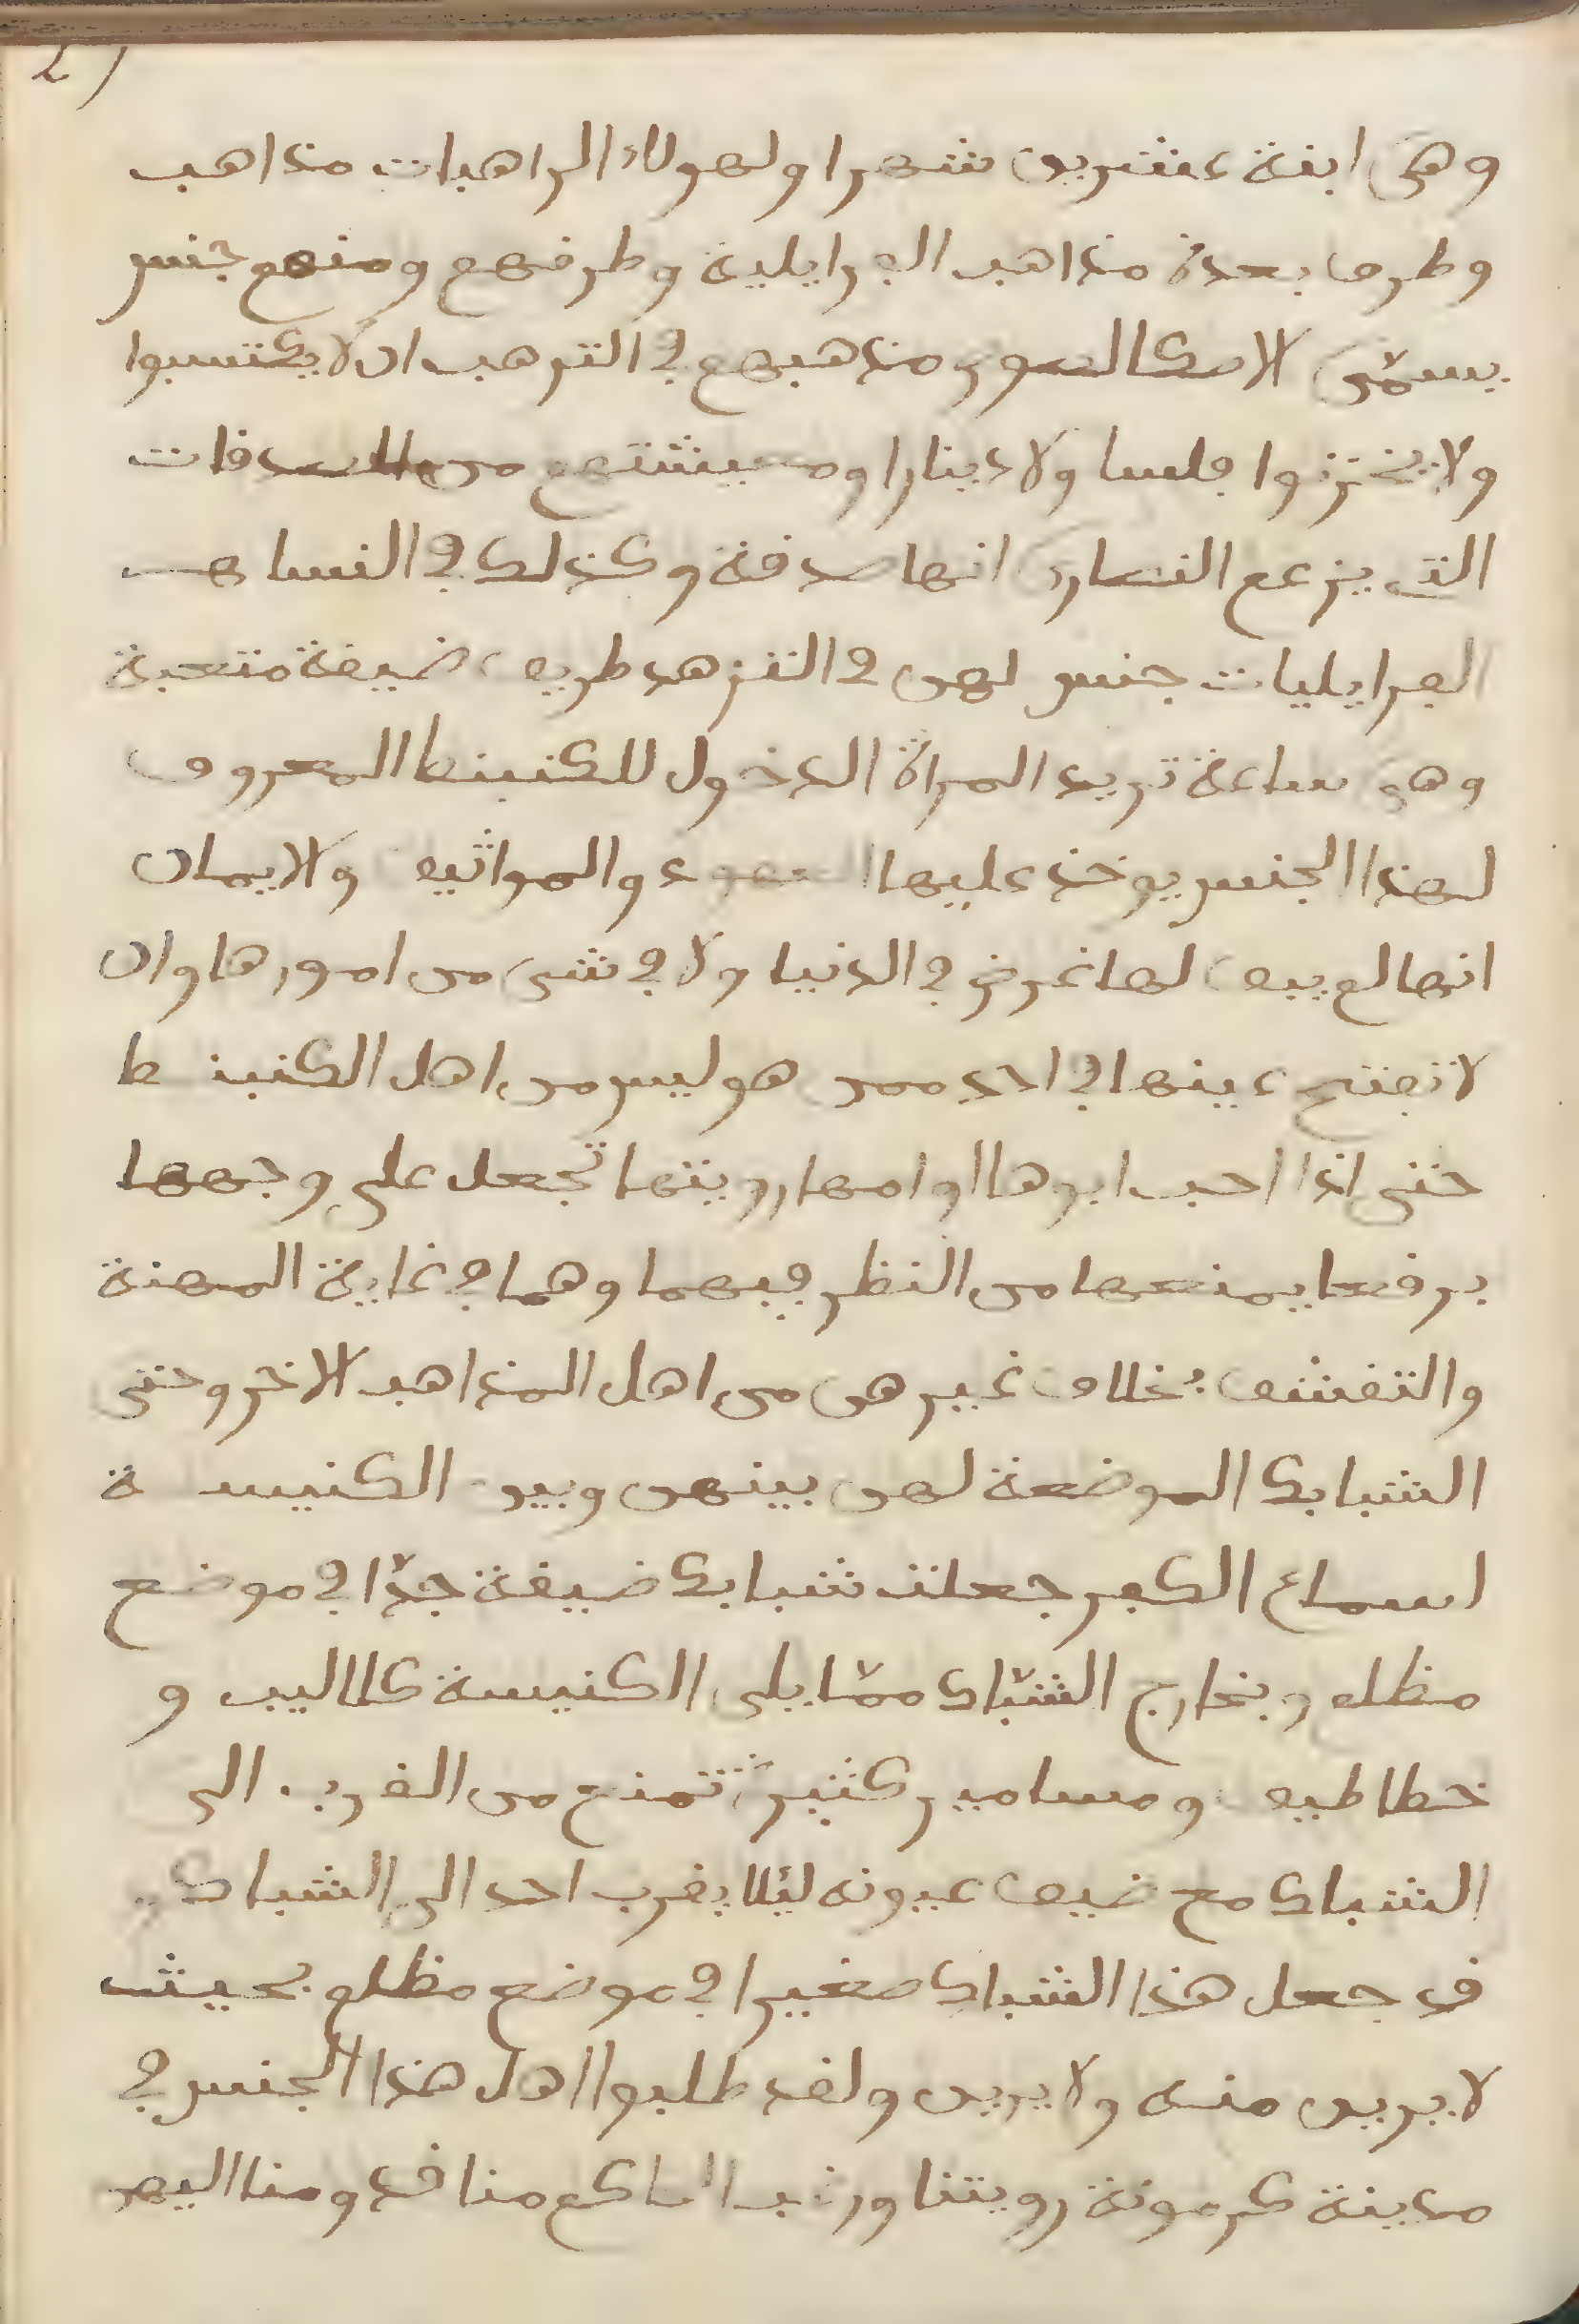 وهى ابنة عشرين شهرا ولهولاء الراهبات مذاهب
وطرق بعدة مذاهب الفرايلية وطرقهم ومنهم جنس
يسمّى الاسكالسوس ومذهبهم في الترهب ان لا يكتسبوا
ولا يختزنوا فلسا ولا دينارا ومعيشتهم من الصدقات
التى يزعم النصارى انها صدقة وكذلك في النسا
الفرايليات جنس لهن في التزهد طريق ضيقة متعبة
وهى ساعة تريد المراة الدخول للكنبينط المعروف
لهذا الجنس يوخذ عليها العهود والمواثيق والايمان
انها لم يبق لها غرض في الدنيا ولا في شىء من امورها وان
لا تفتح عينها في احد ممن هو ليس من اهل الكنبينط
حتى اذا احب ابوها او امها رويتها تجعل على وجهها
برقعا يمنعها من النظر فيهما وهما في غاية المهنة
والتقشف بخلاف غيرهن من اهل المذاهب الاخر وحتى
الشبابك الموضعة لهن بينهن وبين الكنيسة
اسماع الكفر جعلت شبابك ضيقة جدّا في موضع
مظلم وبخارج الشبّاك ممّا يلى الكنيسة كلاليب و
خطاطيف ومسامير كثيرة تمنع من القرب الى
الشباك مع ضيق عيونه ليلا يقرب احد الى الشباك
قد جعل هذا الشباك صغيرا في موضع مظلم بحيث
لا يرين منه ولا يرين ولقد طلبوا اهل هذا الجنس في
مدينة كرمونة رويتنا ورغب الحاكم منا فدومنا اليهم